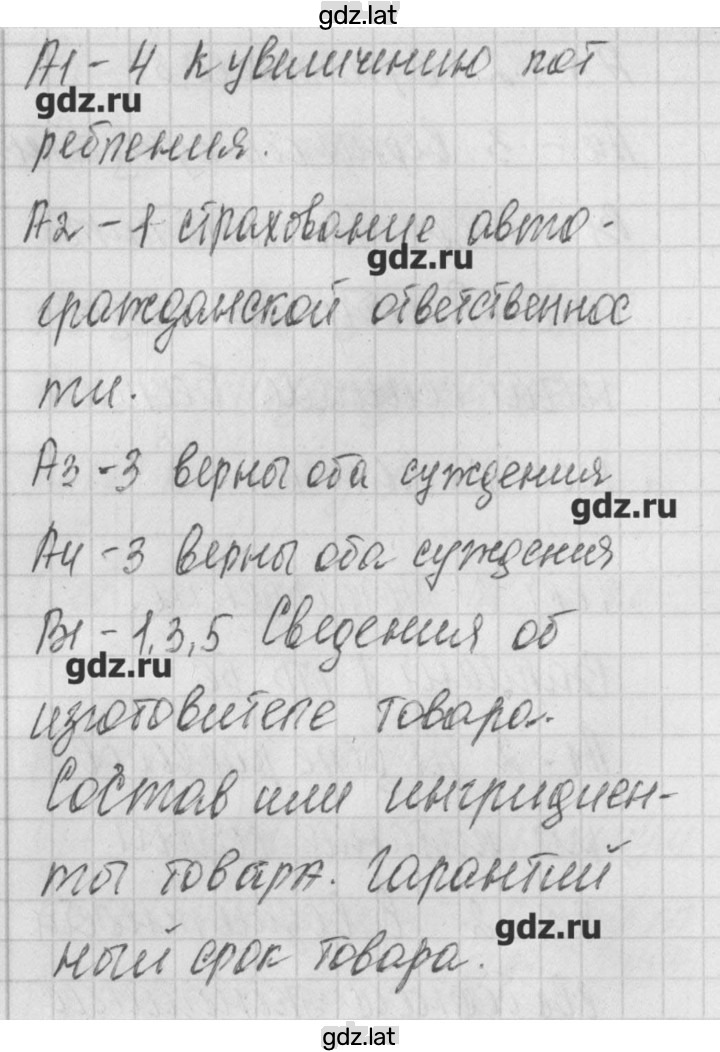 gdz.lat
А1 - 4 к увеличению пот
gdz.ru
ребления.
А2 - 1 страхование авто-
gdz.ru
гражданской ответственнос
ти.
А3 - 3 верны оба суждения
gdz.ru
А4 - 3 верны оба суждения
В1 - 1,3,5 Сведения об
gdz.ru
изготовителе товара.
Состав или ингридиен-
ты товара. Гарантий
gdz.ru
ный срок товара.
gdz.lat